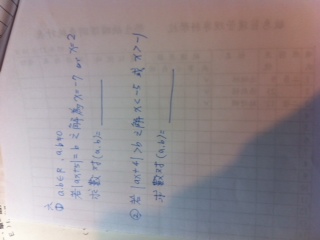 六
① a,b∈R, a,b≠0
若|ax+5|=b 之解為 x=-7 or x=2
求數對(a,b)=
② 若 |ax+4|>b 之解 x<-5 或 x>-1
求數對(a,b)=